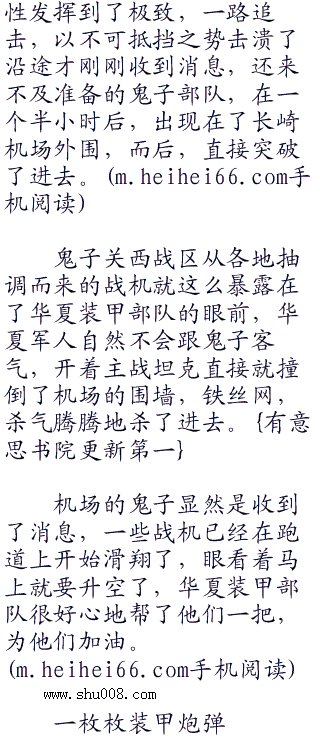 性发挥到了极致，一路追
击，以不可抵挡之势击溃了
沿途才刚刚收到消息，还来
不及准备的鬼子部队，在一
个半小时后，出现在了长崎
机场外围，而后，直接突破
了进去。(m.heihei66.com手
机阅读)
鬼子关西战区从各地抽
调而来的战机就这么暴露在
了华夏装甲部队的眼前，华
夏军人自然不会跟鬼子客
气，开着主战坦克直接就撞
倒了机场的围墙，铁丝网，
杀气腾腾地杀了进去。{有意
思书院更新第一}
机场的鬼子显然是收到
了消息，一些战机已经在跑
道上开始滑翔了，眼看着马
上就要升空了，华夏装甲部
队很好心地帮了他们一把，
为他们加油。
(m.heihei66.com手机阅读)
www.shu008.com
一枚枚装甲炮弹